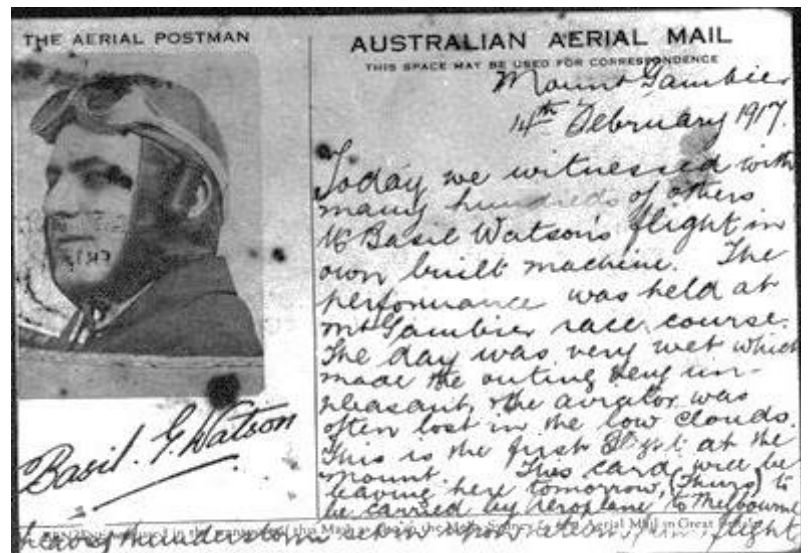 THE AERIAL POSTMAN
Basil. G. Watson
AUSTRALIAN AERIAL MAIL
THIS SPACE MAY BE USED FOR CORRESPONDENCE
Mount Gambier
14th February 1917.
Today we witnessed with
many hundreds of others
Mr Basil Watson's flight in
own built machine. The
performance was held at
Mt Gambier race course.
The day was very wet which
made the outing very un-
pleasant, & the aviator was
often lost in the low clouds.
This is the first flight at the
Mount. This card will be
leaving here tomorrow, (Thurs) to
be carried by Aeroplane to Melbourne
heavy thunderstorm flight